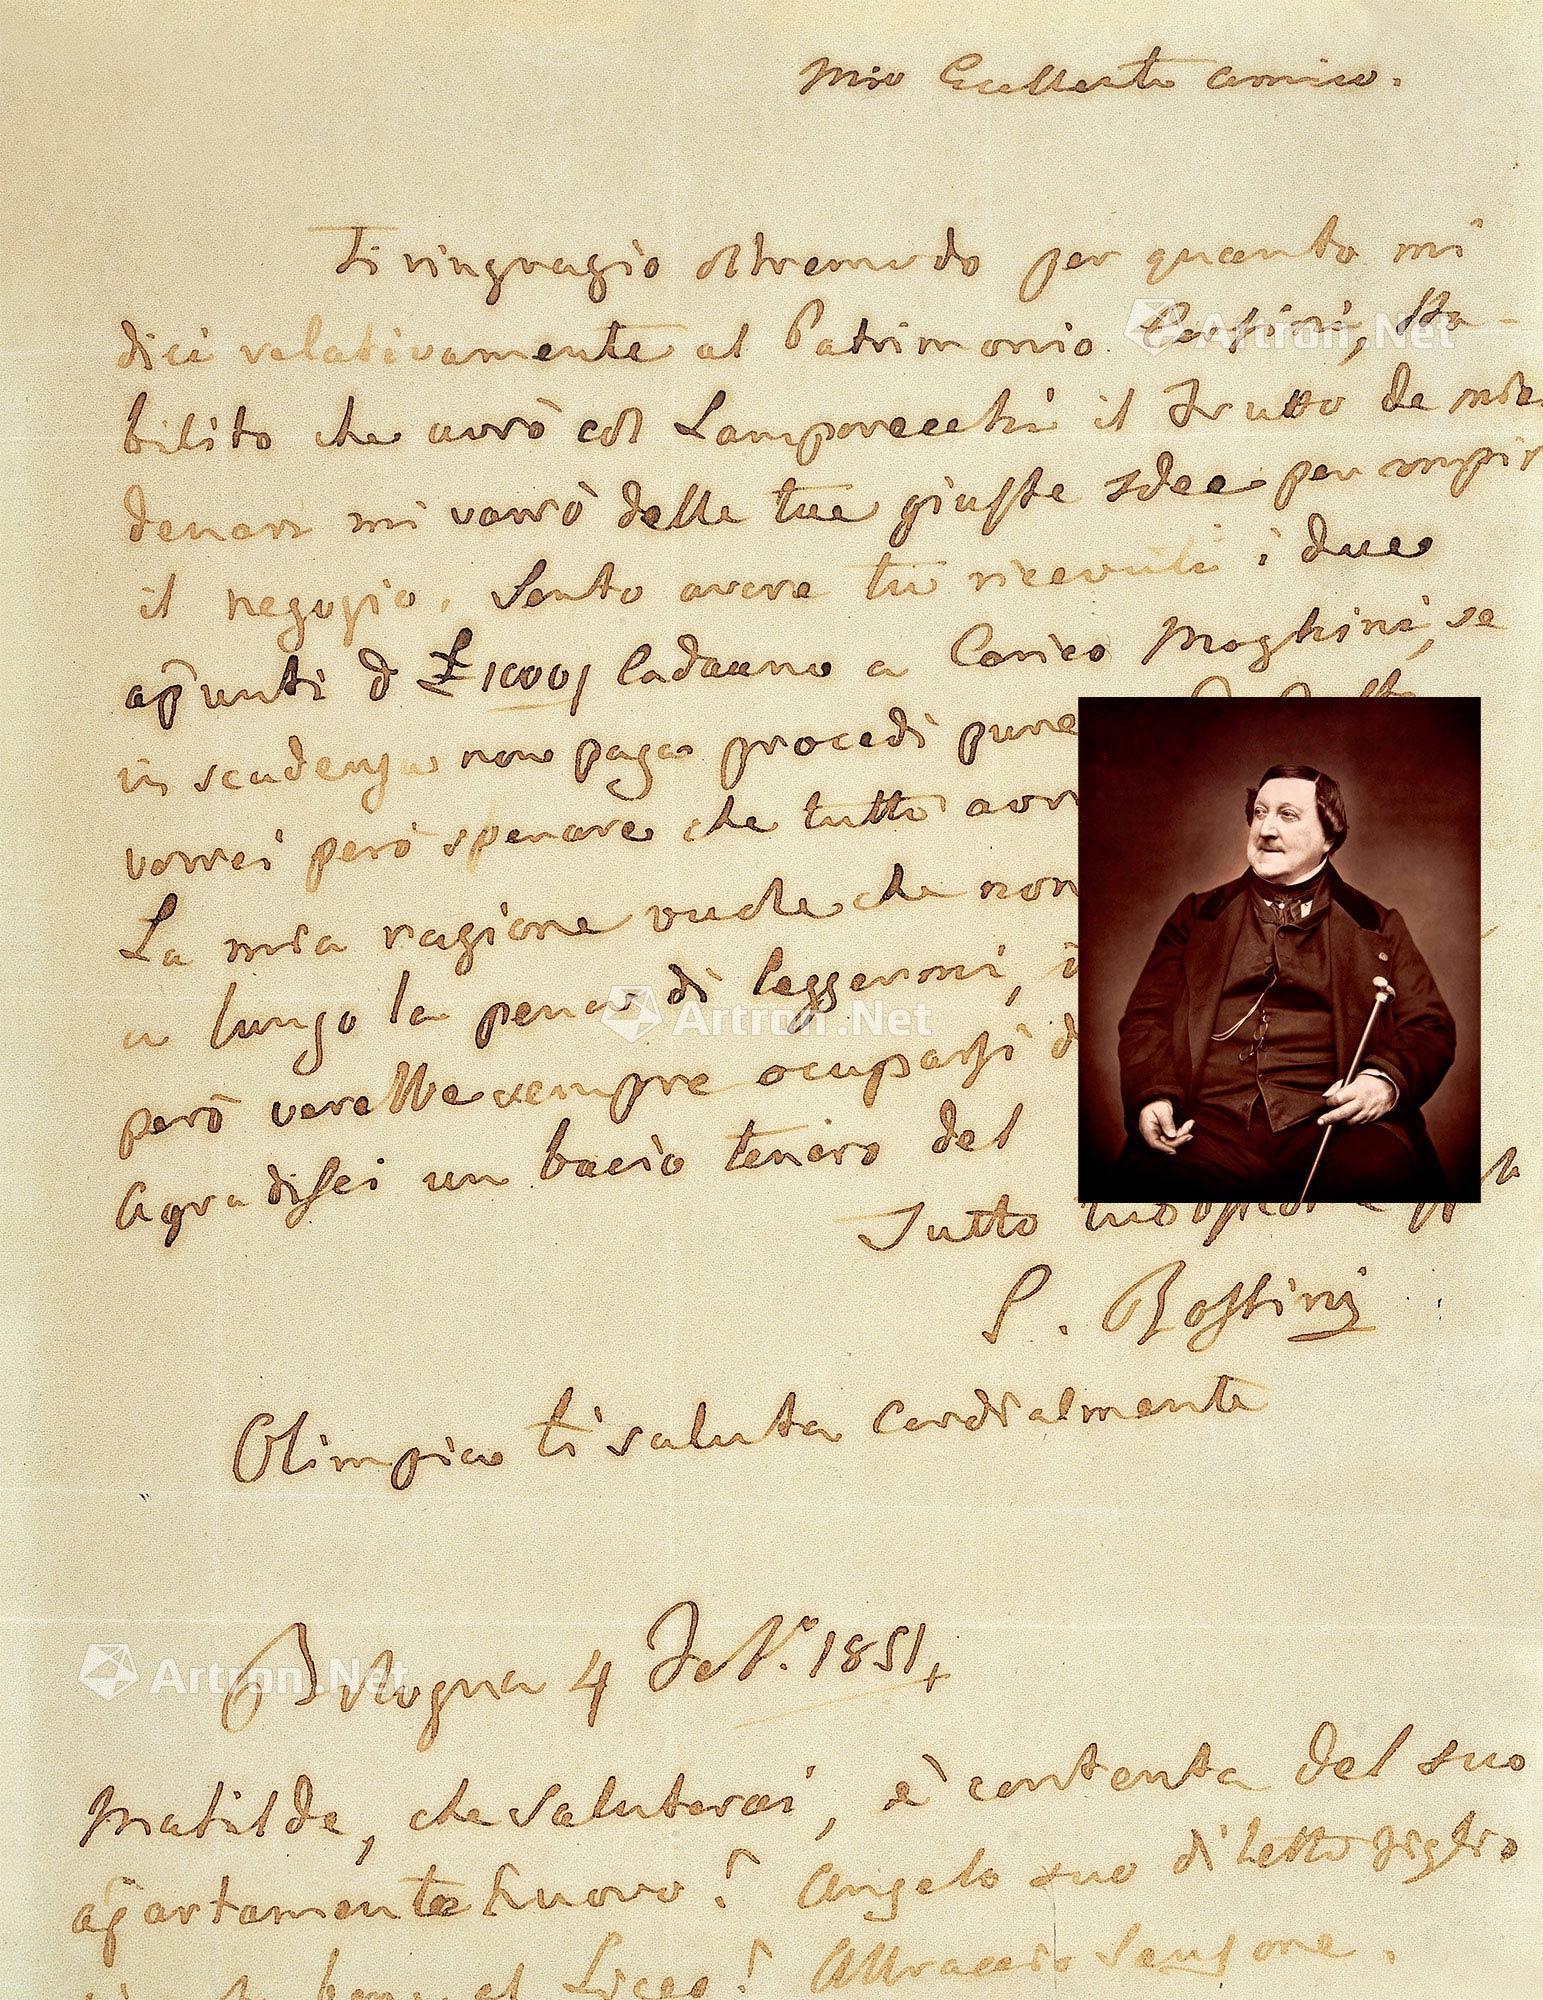 Mio Eccellente Amico.
Ti ringrazio oltremodo per quanto mi
dici relativamente al Patrimonio, Sta-
bilito che avrò col Lamporecchi il Frutto de miei
denari mi varrò delle tue giuste idee per
il negozio. Sento avere tu ricevuti i due
apunti d £ 1000/ Cadauno a Carico Moghini, se
in scadenza non paga procedi pure
vorrei però sperare che tutto
La mia ragione vuole che non
a lungo la pena di leggermi,
però ocuparsi
Agradisci un bacio tenero del
Tutto tuo
G. Rossini
Olimpia ti saluta Cordialmente
Bologna 4 Feb.º 1851
Matilde, che saluterai, è contenta del suo
apartamento nuovo? Angelo suo diletto Figlio
bene al Liceo? Abbraccio Sansone.
Artron.Net
Artron.Net
Artron.Net